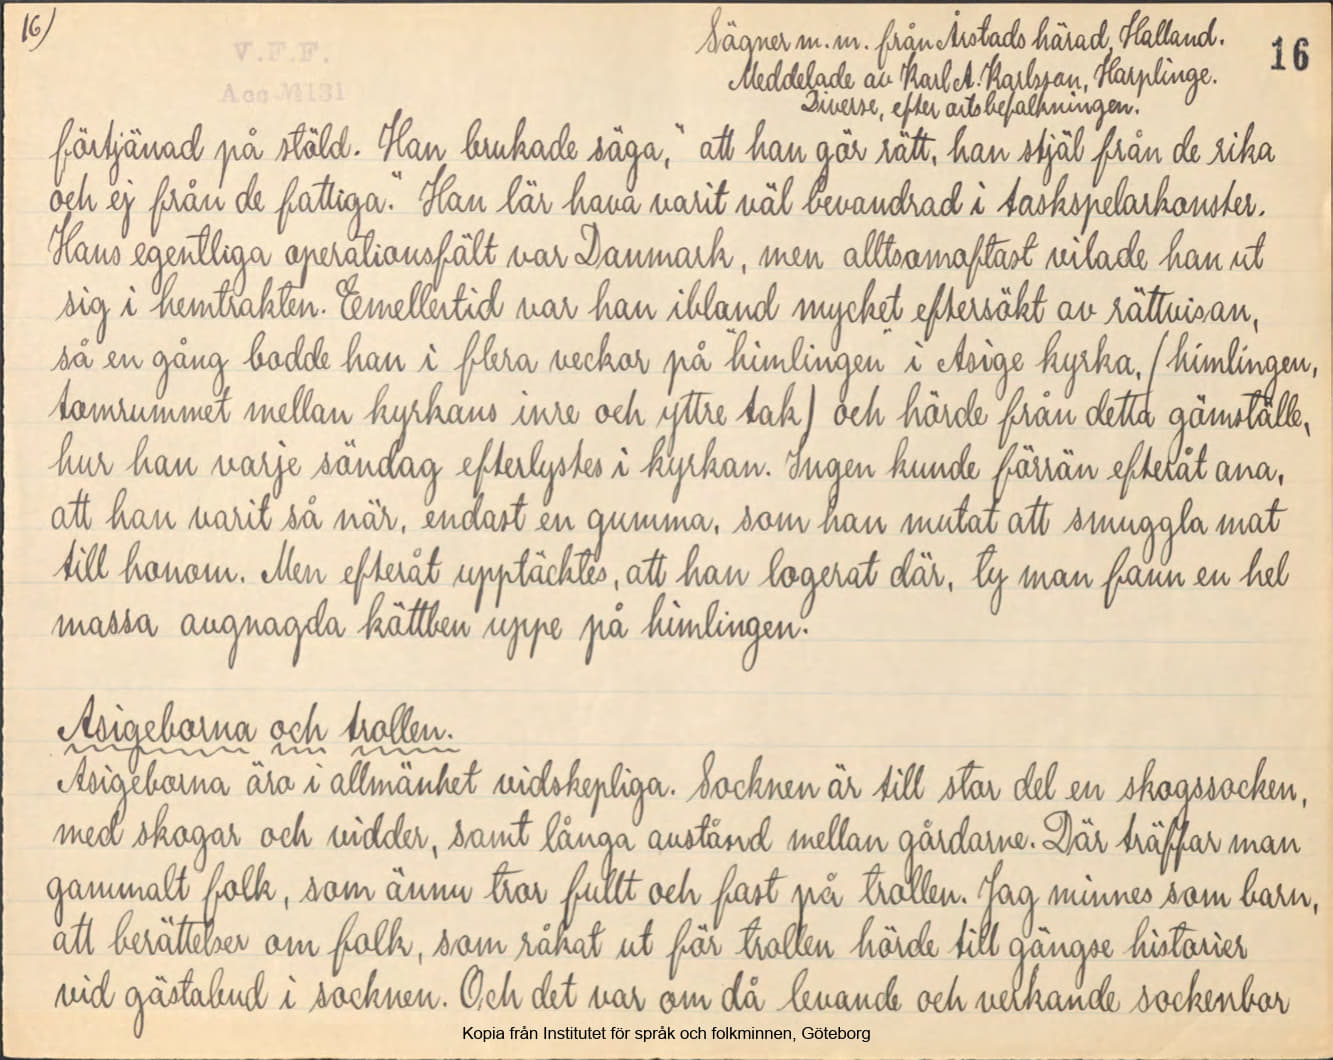 16)
Sägner m.m. från Årstads härad, Halland.
16
V.F.F.
Acc M131
Meddelade av Karl A. Karlsson, Harplinge.
Diverse, efter ortsbefolkningen.
förtjänad på stöld. Han brukade säga," att han gör rätt, han stjäl från de rika
och ej från de fattiga." Han lär hava varit väl bevandrad i taskspelarkonster.
Hans egentliga operationsfält var Danmark, men alltsomoftast vilade han ut
sig i hemtrakten. Eemellertid var han ibland mycket eftersökt av rättvisan,
så en gång bodde han i flera veckor på "himlingen" i Asige kyrka, (himlingen,
tomrummet mellan kyrkans inre och yttre tak) och hörde från detta gömställe,
hur han varje söndag efterlystes i kyrkan. Ingen kunde förrän efteråt ana,
att han varit så när, endast en gumma, som han mutat att smuggla mat
till honom. Men efteråt upptäcktes, att han logerat där, ty man fann en hel
massa avgnagda köttben uppe på himlingen.
Asigeborna och trollen.
Asigeborna äro i allmänhet vidskepliga. Socknen är till stor del en skogssocken,
med skogar och vidder, samt långa avstånd mellan gårdarne. Där träffar man
gammalt folk, som ännu tror fullt och fast på trollen. Jag minnes som barn,
att berättelser om folk, som råkat ut för trollen hörde till gängse historier
vid gästabud i socknen. Och det var om då levande och verkande sockenbor
Kopia från Institutet för språk och folkminnen, Göteborg